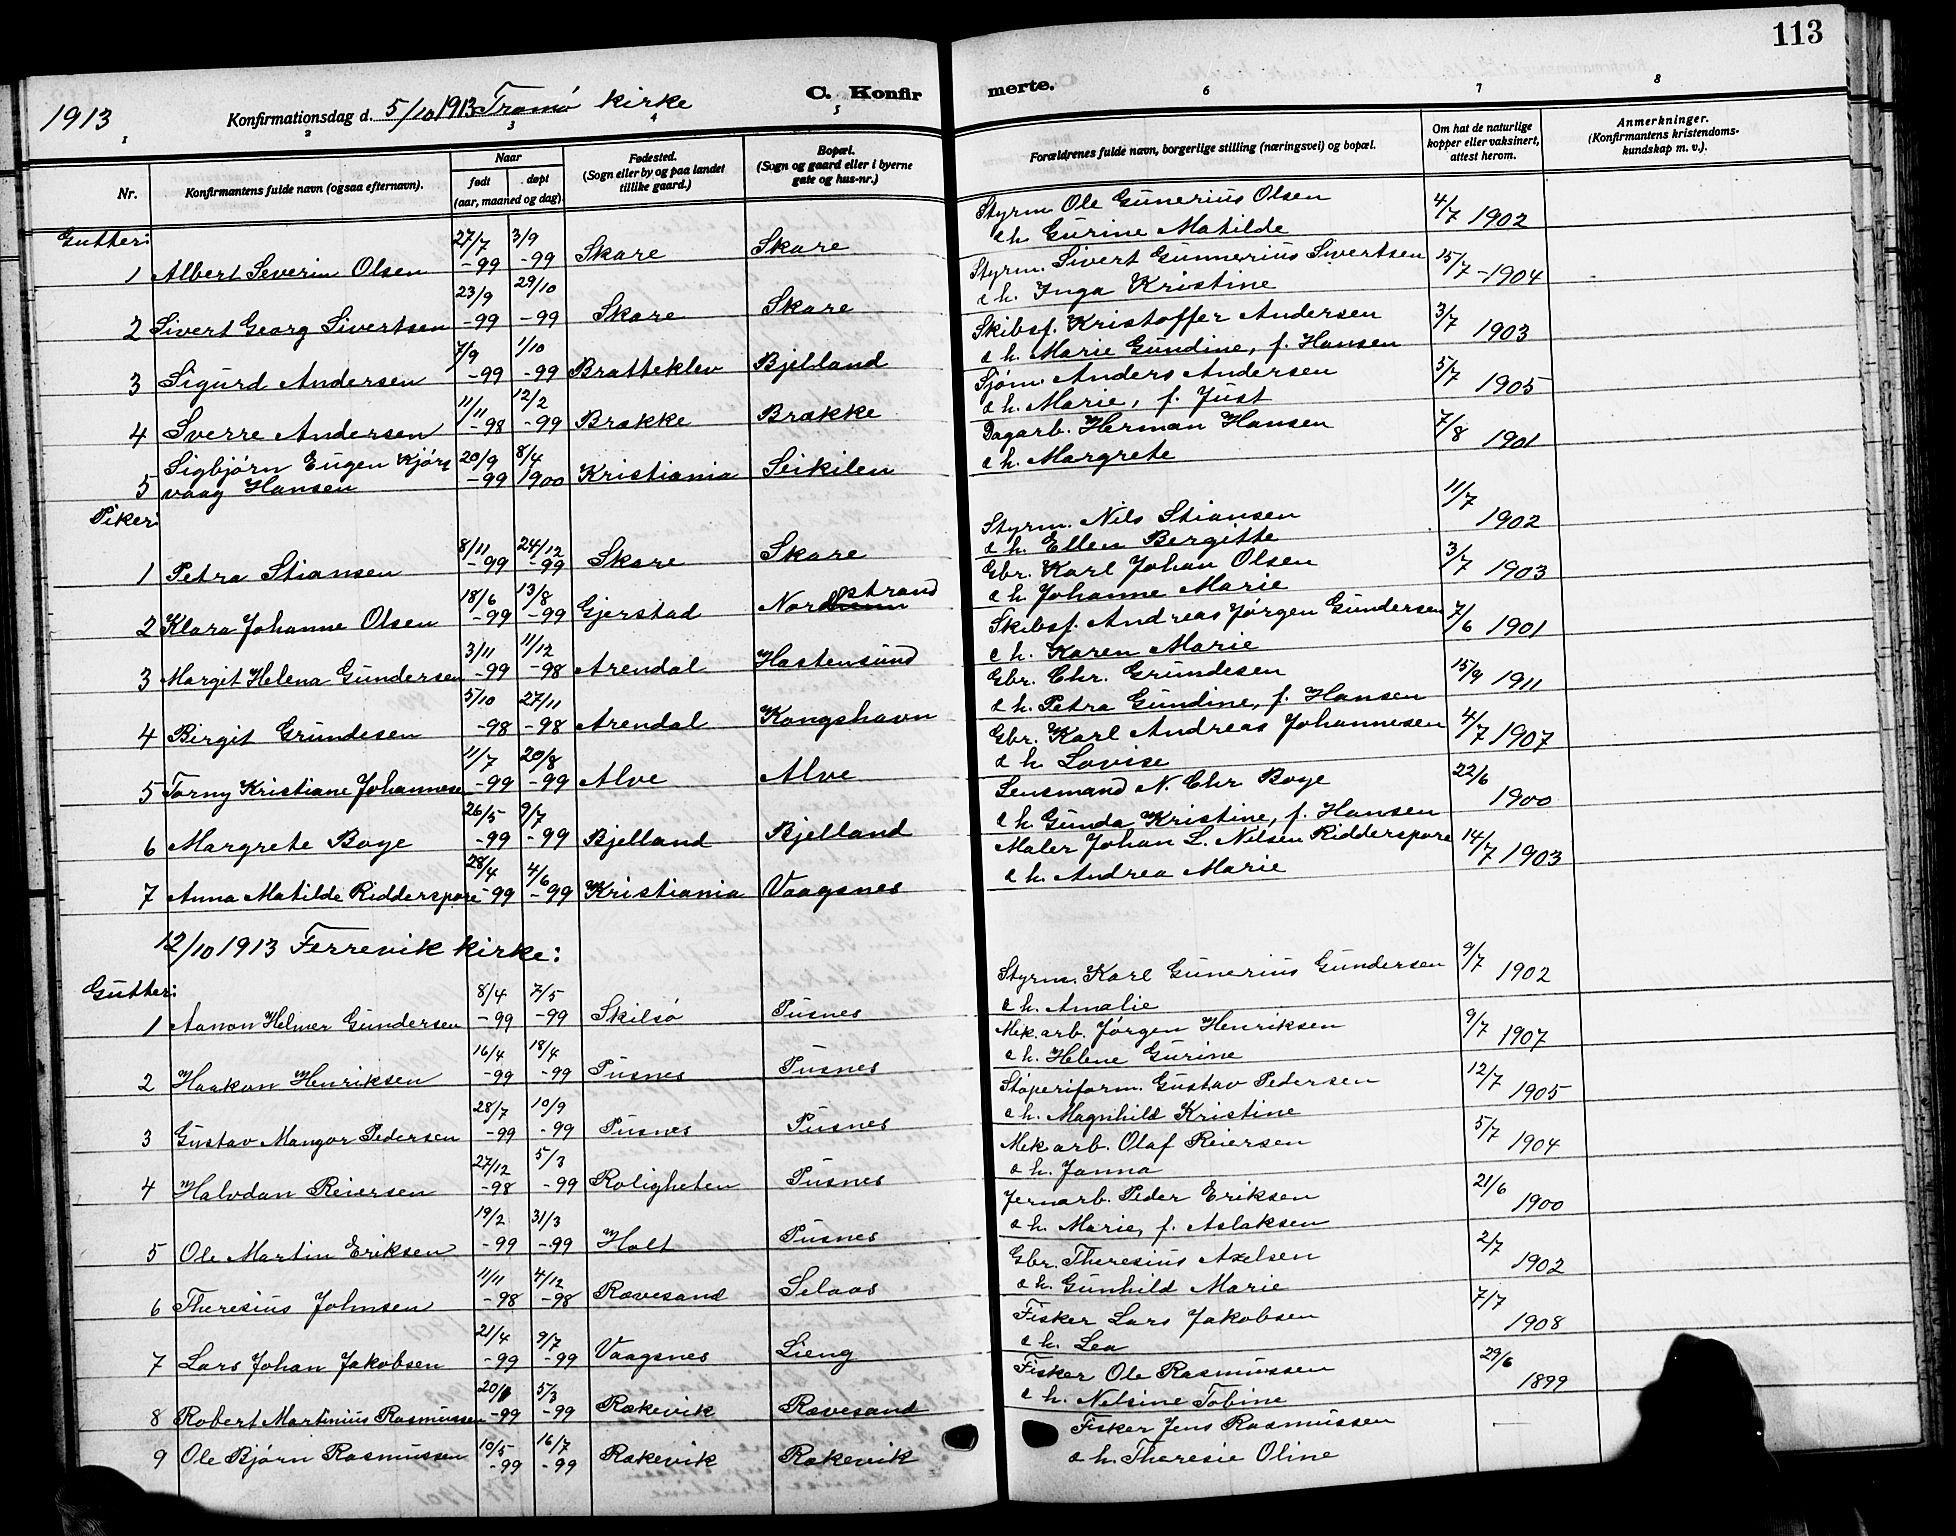 113
1913 Konfirmationsdag d. 5/10 1913 Tromø kirke C. Konfirmerte.
1 2 3 4 5 6 7 8
Nr. Konfirmantens fulde navn (ogsaa efternavn). Naar født døpt (aar, maaned og dag) Fødested. (Sogn eller by og paa landet tillike gaard.) Bopæl. (Sogn og gaard eller i byerne gate og hus-nr.) Forældrenes fulde navn, borgerlige stilling (næringsvei) og bopæl. Om hat de naturlige kopper eller vaksinert, attest herom. Anmerkninger. (Konfirmantens kristendomskundskap m. v.).
Gutter:
1 Albert Severin Olsen 27/7 -99 3/9 -99 Skare Skare Styrm. Ole Gunerius Olsen o h. Gurine Matilde 4/7 1902
2 Sivert Georg Sivertsen 23/9 -99 29/10 -99 Skare Skare Styrm. Sivert Gunnerius Sivertsen o h. Inga Kristine 15/7 -1904
3 Sigurd Andersen 7/9 -99 1/10 -99 Bratteklev Bjelland Skibsf. Kristoffer Andersen o h. Marie Gundine, f. Hansen 3/7 1903
4 Sverre Andersen 11/11 -98 12/2 -99 Brække Brække Sjøm. Anders Andersen o h. Marie, f. Just 5/7 1905
5 Sigbjørn Eugen Kjørvaag Hansen 20/9 -99 8/4 1900 Kristiania Seikilen Dagarb. Herman Hansen o h. Margrete 7/8 1901
Piker:
1 Petra Stiansen 8/11 -99 24/12 -99 Skare Skare Styrm. Nils Stiansen o h. Ellen Bergitte 11/7 1902
2 Klara Johanne Olsen 18/6 -99 13/8 -99 Gjerstad Nordstrand Gbr. Karl Johan Olsen o h. Johanne Marie 3/7 1903
3 Margit Helena Gundersen 3/11 -99 11/12 -98 Arendal Hastensund Skibsf. Andreas Jørgen Gundersen o h. Karen Marie 7/6 1901
4 Birgit Grundesen 5/10 -98 27/11 -98 Arendal Kongshavn Gbr. Chr. Grundesen o h. Petra Gundine, f. Hansen 15/9 1911
5 Torny Kristiane Johannesen 11/7 -99 20/8 -99 Alve Alve Gbr. Karl Andreas Johannesen o h Lovise 4/7 1907
6 Margrete Boye 26/5 -99 9/7 -99 Bjelland Bjelland Lensmand N. Chr Boye o h. Gunda Kristine, f. Hansen 22/6 1900
7 Anna Matilde Ridderspore 28/4 -99 4/6 -99 Kristiania Vaagsnes Maler Johan L. Nilsen Ridderspore o h. Andrea Marie 14/7 1903
12/10 1913 Færrevik kirke:
Gutter:
1 Aanon Helmer Gundersen 8/4 -99 7/5 -99 Skilsø Pusnes Styrm. Karl Gunerius Gundersen o h. Amalie 9/7 1902
2 Haakon Henriksen 16/4 -99 18/4 -99 Pusnes Pusnes Mek. arb. Jørgen Henriksen o h. Helene Gurine 9/7 1907
3 Gustav Mangor Pedersen 28/7 -99 10/9 -99 Pusnes Pusnes Støperiform. Gustav Pedersen o h. Magnhild Kristine 12/7 1905
4 Halvdan Reiersen 27/12 -98 5/3 -99 Roligheten Pusnes Mek. arb. Olaf Reiersen o h. Janna 5/7 1904
5 Ole Martin Eriksen 19/2 -99 31/3 -99 Holt Pusnes Jernarb. Peder Eriksen o h. Marie, f. Aslaksen 21/6 1900
6 Theresius Johnsen 11/11 -98 4/12 -98 Rævesand Selaas Gbr. Theresius Axelsen o h. Gunhild Marie 2/7 1902
7 Lars Johan Jakobsen 21/4 -99 9/7 -99 Vaagsnes Lieng Fisker Lars Jakobsen o h. Lea 7/7 1908
8 Robert Martinius Rasmussen 20/1 -99 5/3 -99 Rækevik Rævesand Fisker Ole Rasmussen o h. Nelsine Tobine 29/6 1899
9 Ole Bjørn Rasmussen 10/5 -99 16/7 -99 Rækevik Rækevik Fisker Jens Rasmussen o h. Theresie Oline -